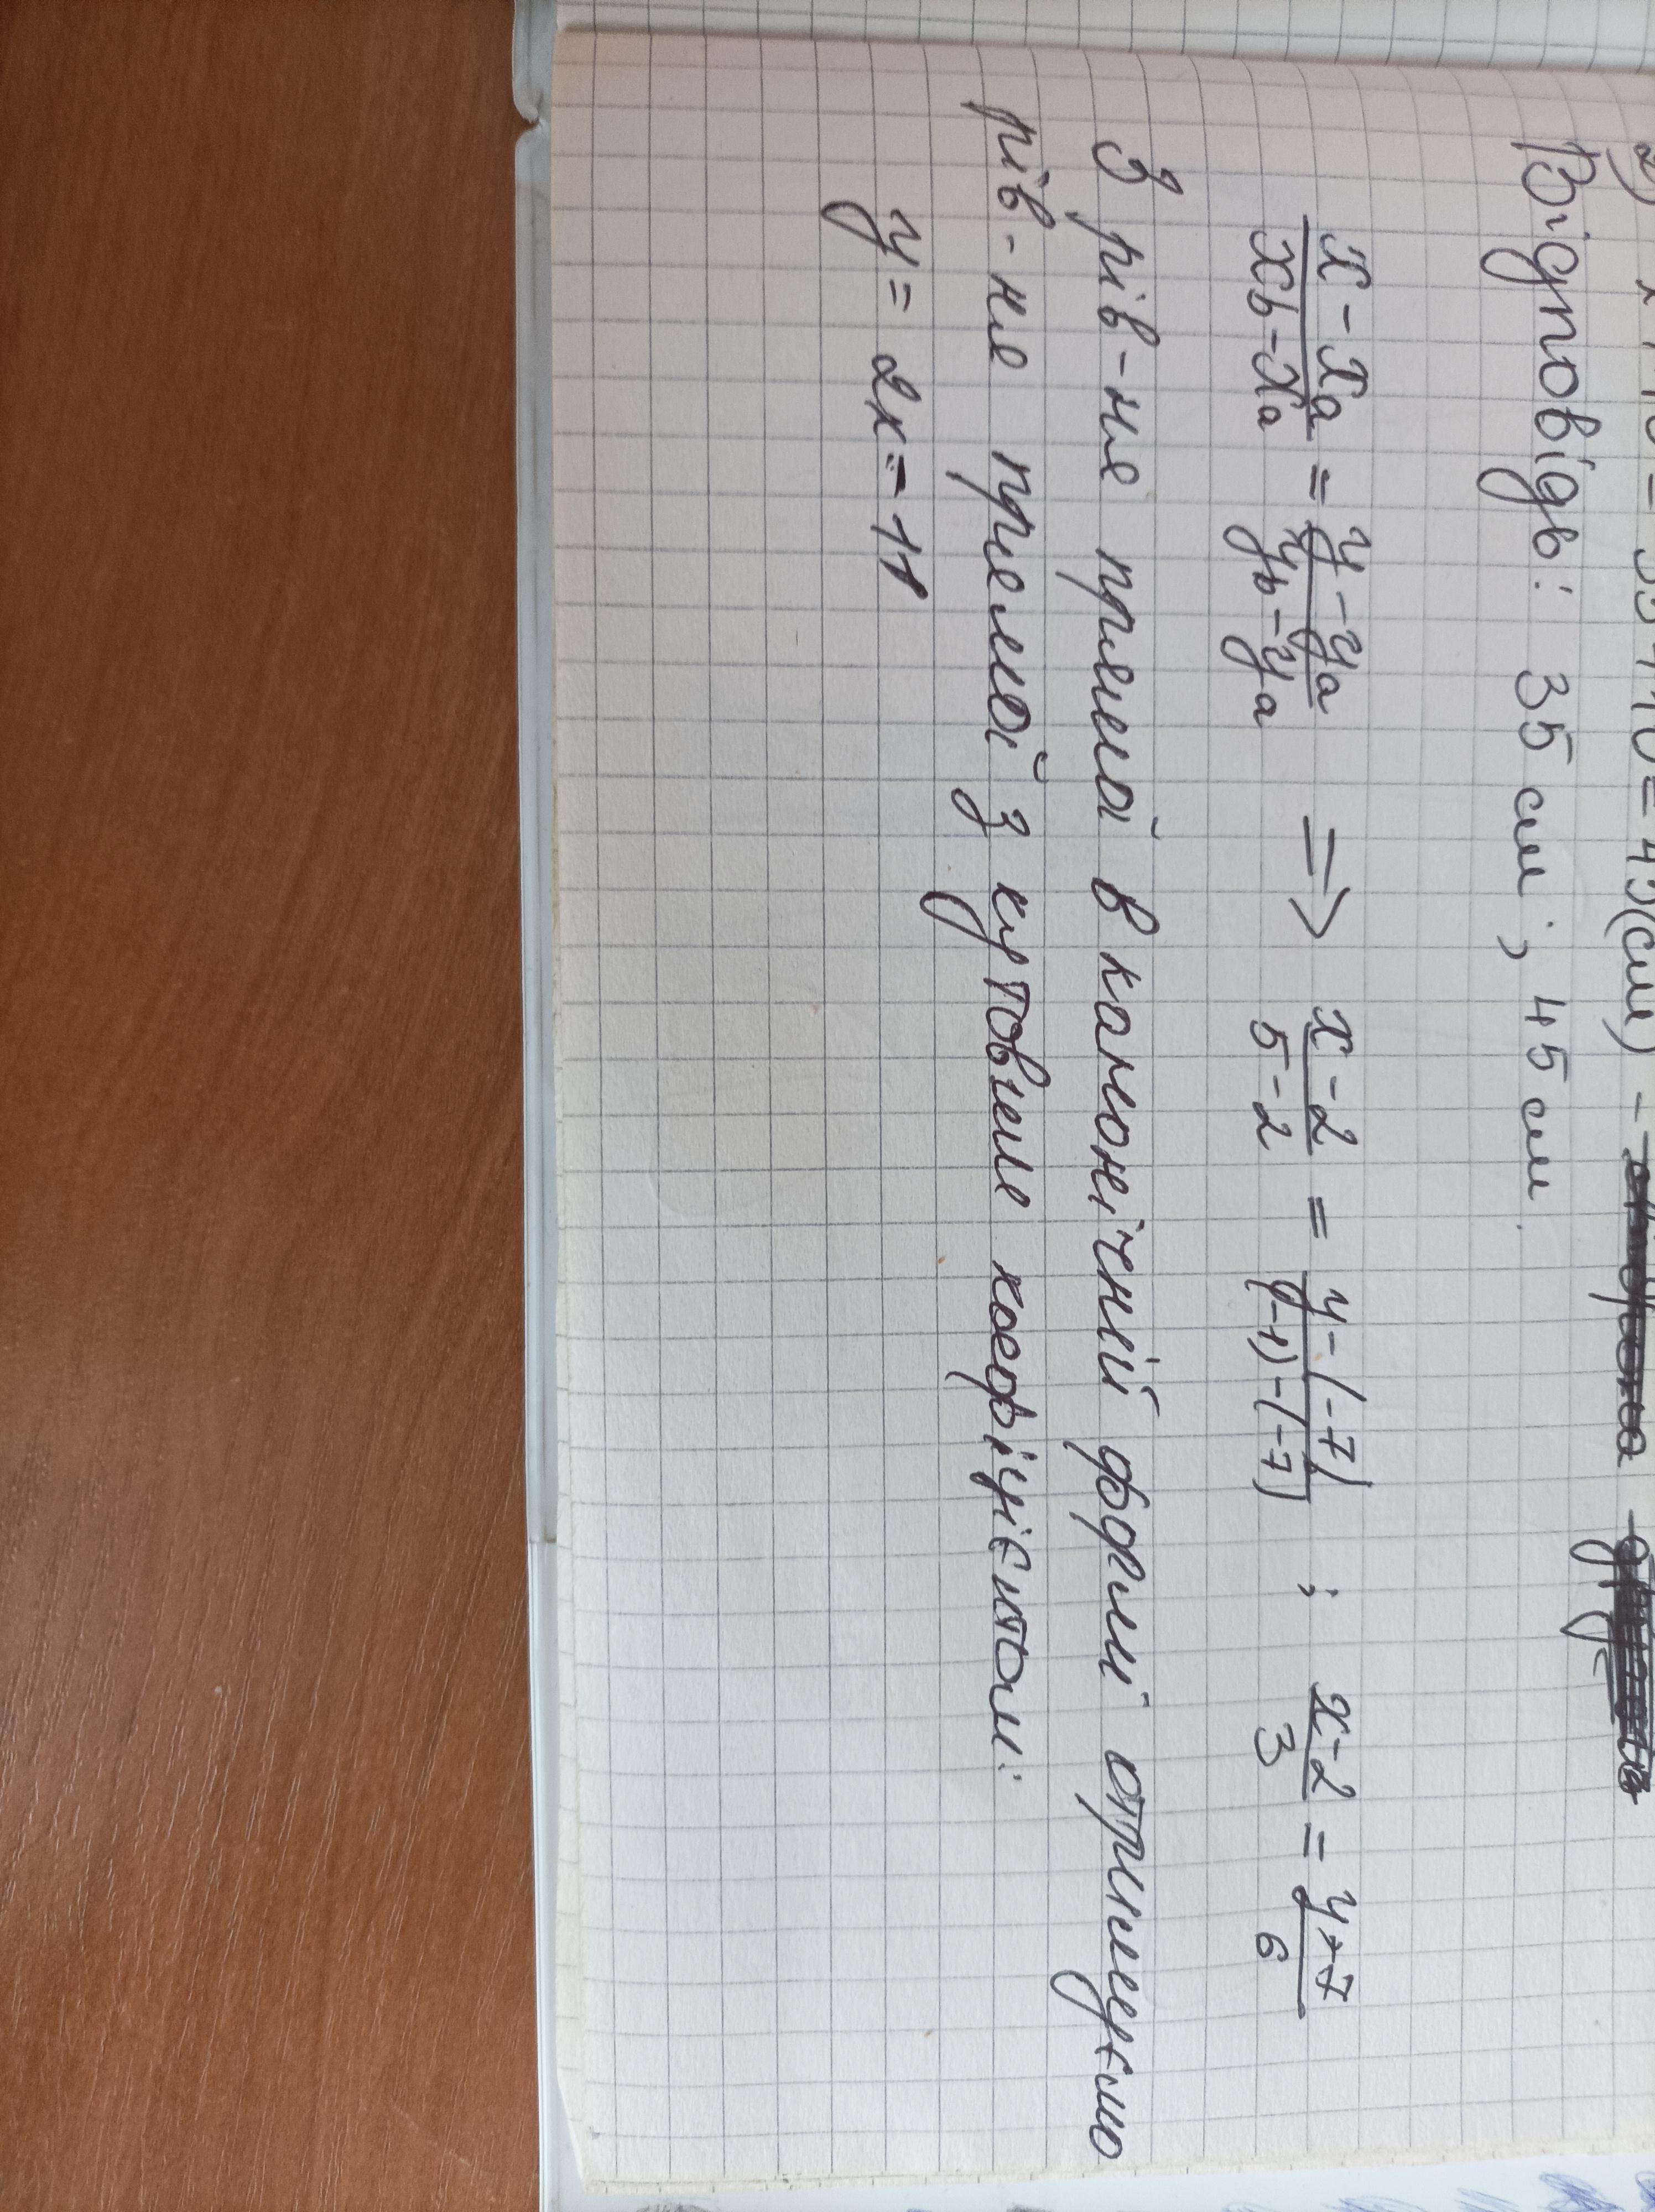 2) x+10=35+10=45(см) -
Відповідь: 35 см; 45 см.
x-xa/xb-xa = y-ya/yb-ya => x-2/5-2 = y-(-7)/(-1)-(-7) ; x-2/3 = y+7/6
З рів-ня прямої в канонічній формі отримуємо
рів-ня прямої з кутовим коефіцієнтом:
y= 2x=-11